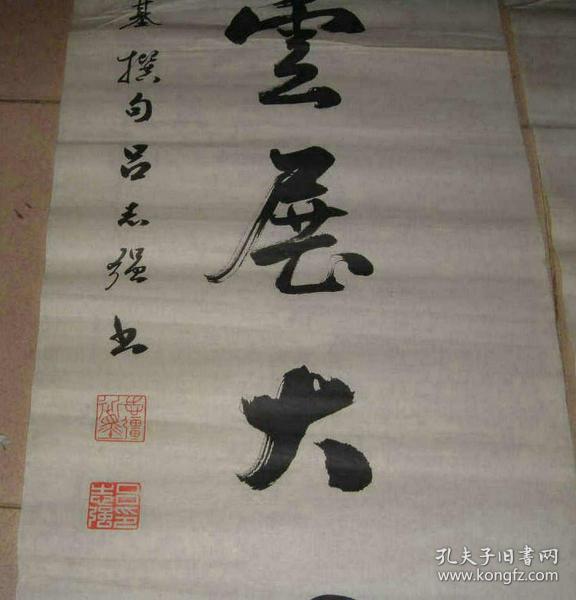 雲展大
基撰句吕志强书
吕志强印
孔夫子旧书网
www.kongfz.com